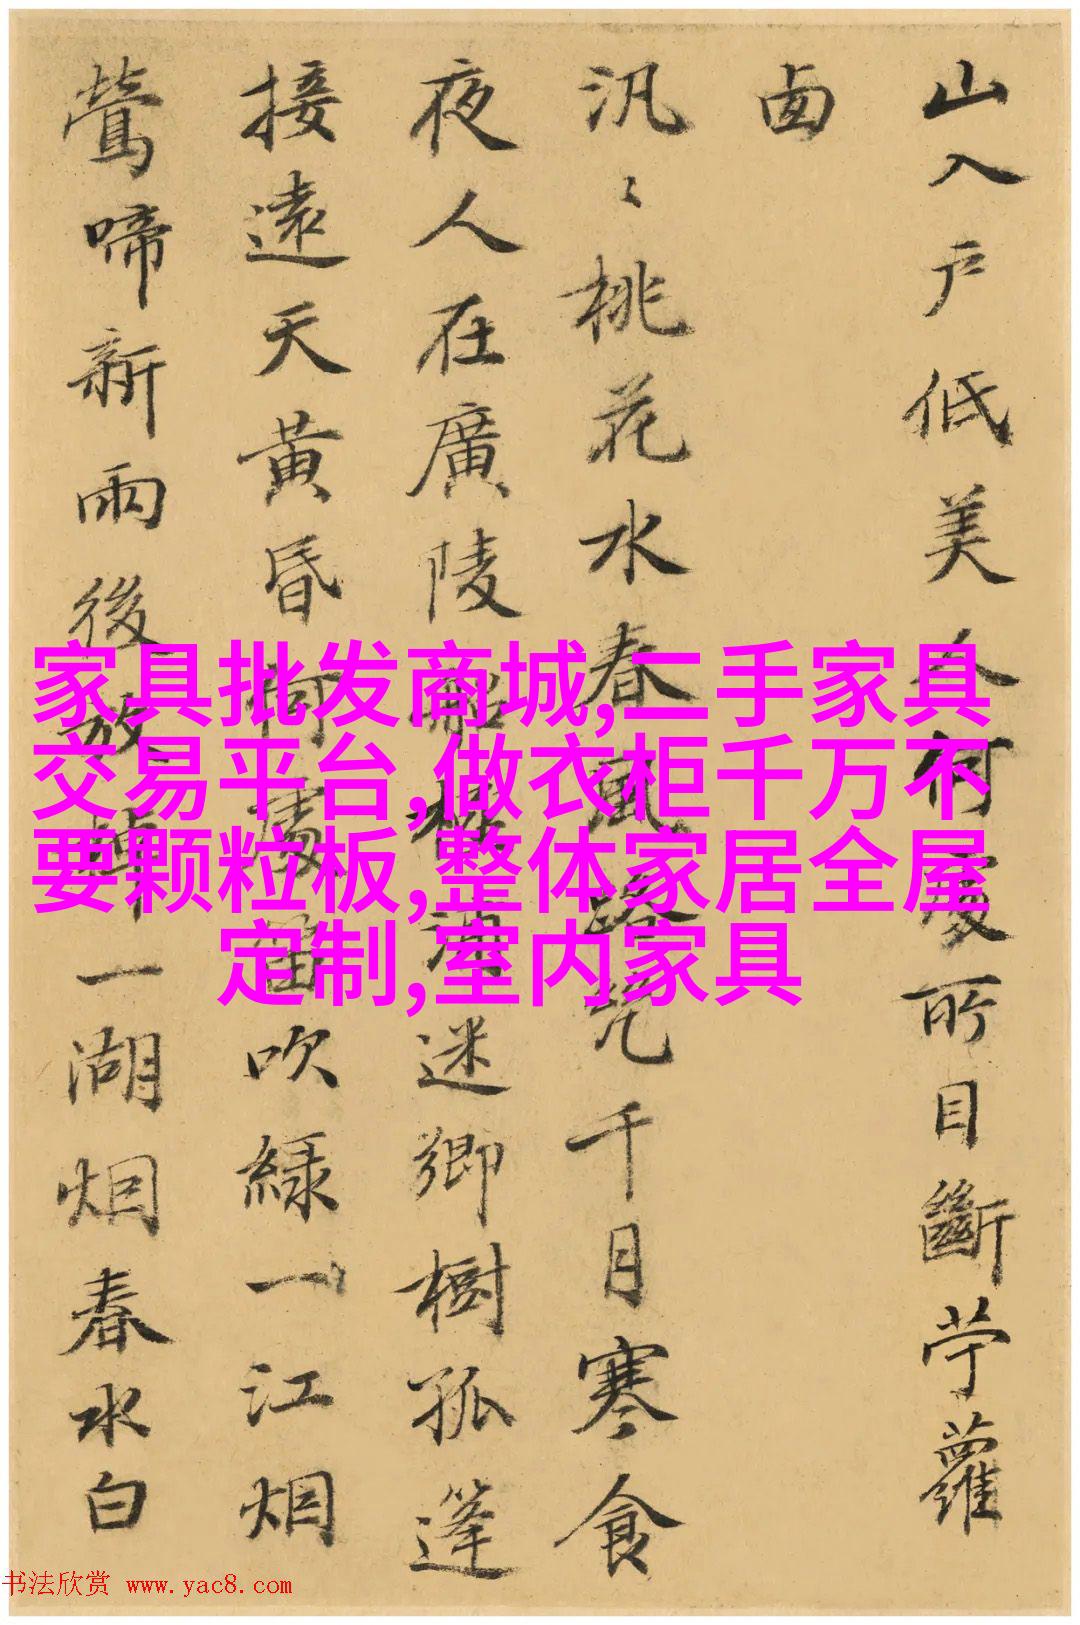 山入户低美人何處所目斷苧蘿
西
汎〻桃花水春風路几千月寒食
夜人在廣陵船浦迷鄉樹孤篷
接遠天黃昏何處笛吹綠一江烟
鶯啼新雨後放棹一湖烟春水白
家具批发商城,二手家具
交易平台,做衣柜千万不
要颗粒板,整体家居全屋
定制,室内家具
书法欣赏 www.yac8.com